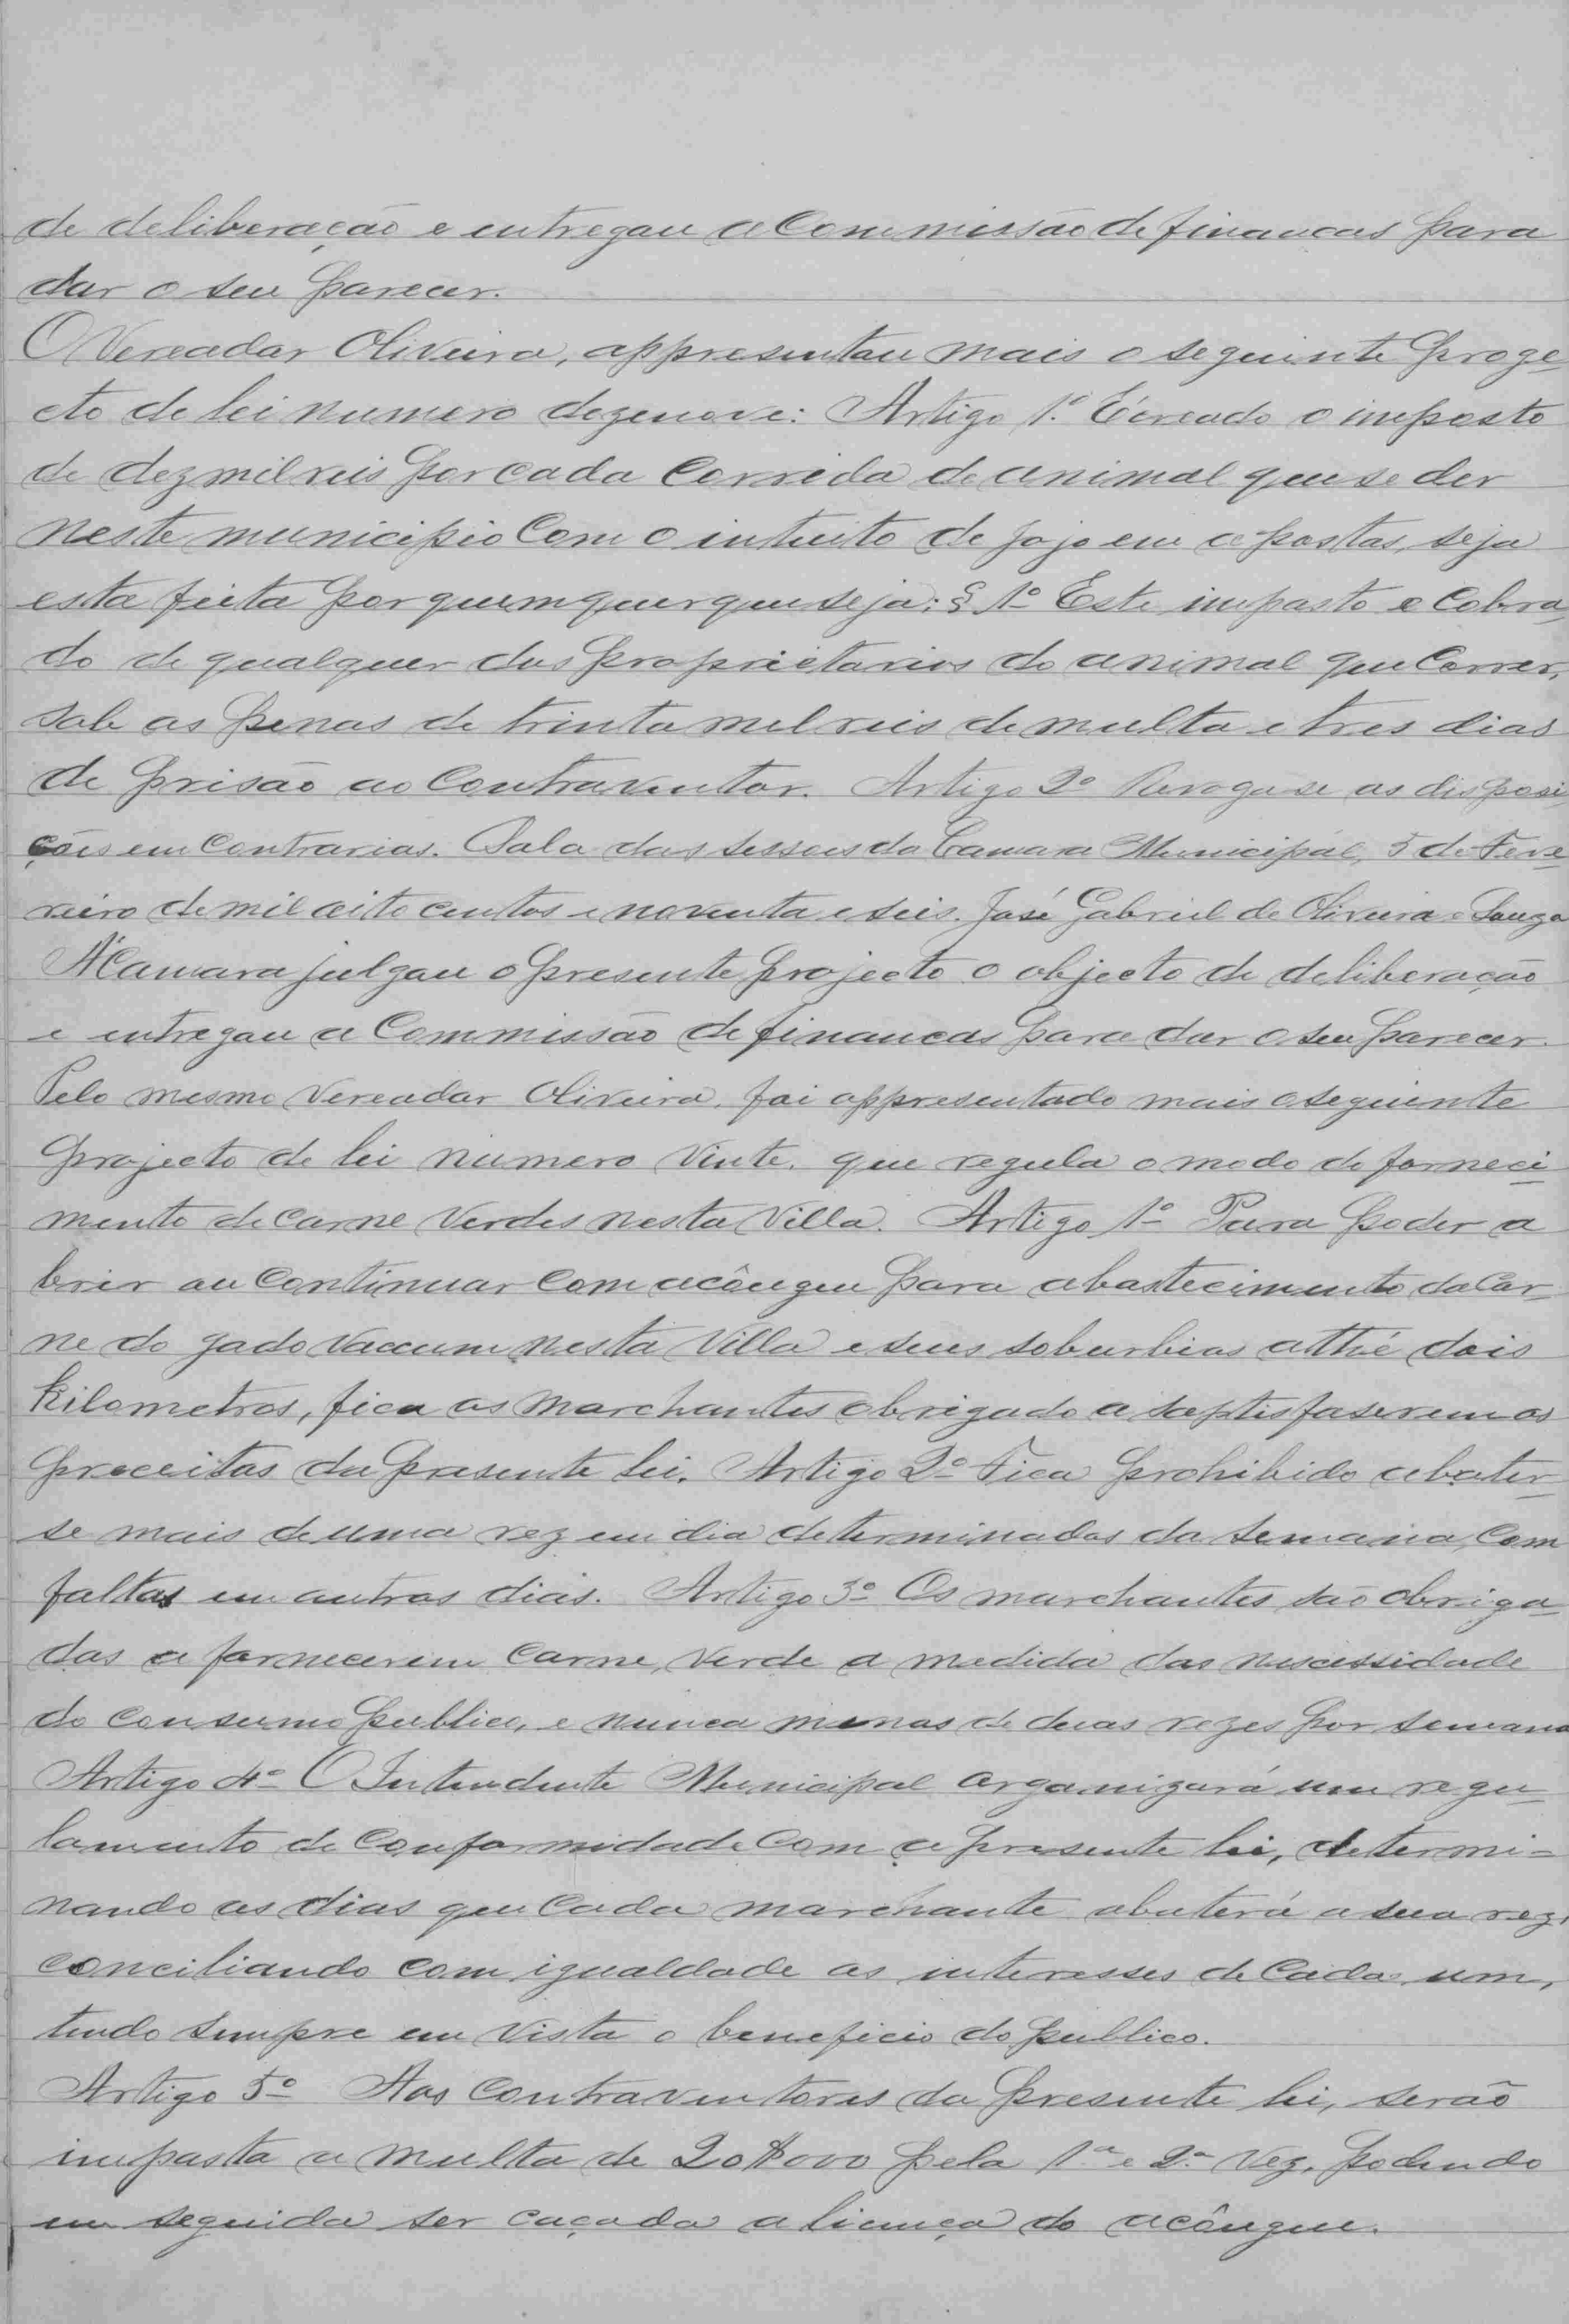 de deliberação e entregou a Commissão de financas para
dar o seu parecer.
O Vereador Oliveira, appresentou mais o seguinte proge
cto de lei numero dezenove: Artigo 1º. É creado o imposto
de dez mil reis por cada corrida de animal que se der
neste municipio com o intuito de jogo em apostas, seja
esta feita por quem quer que seja: § 1º Este imposto e cobra
do de qualquer dos proprietarios do animal que correr,
sob as penas de trinta mil reis de multa e tres dias
de prisão ao contraventor. Artigo 2º Revoga-se as disposi
ções em contrarias. Sala das sessoes da Camara Municipal, 5 de Feve
reiro de mil oito centos e noventa e seis. José Gabriel de Oliveira e Souza
A Camara julgou o presente projecto o objecto de deliberação
e entregou a Commissão de financas para dar o seu parecer.
Pelo mesmo Vereador Oliveira, foi appresentado mais o seguinte
projecto de lei numero vinte, que regula o modo do forneci
mento de carne verdes nesta Villa. Artigo 1º Para poder a
brir ou continuar com acôugue para abastecimento da car
ne do gado vaccum nesta Villa e seus soburbios atthé dois
kilometros, fica os marchantes obrigado a saptisfaserem os
preceitos da presente lei. Artigo 2º Fica prohibido abater-
se mais de uma rez em dia determinados da semana, com
faltas em outros dias. Artigo 3º Os marchantes são obriga
dos a fornecerem carne, verde a medida das nescessidade
do consumo publico, e nunca menos de duas rezes por semana
Artigo 4º O Intendente Municipal organizará um regu
lamento de conformidade com a presente lei, determi-
nando os dias que cada marchante abaterá a sua rez,
conciliando com igualdade os interesses de cada um,
tendo sempre em vista o beneficio do publico.
Artigo 5º Aos contraventores da presente lei, serão
imposta a multa de 20$000 pela 1ª e 2ª vez, podendo
em seguida ser caçada a licença do acôugue.